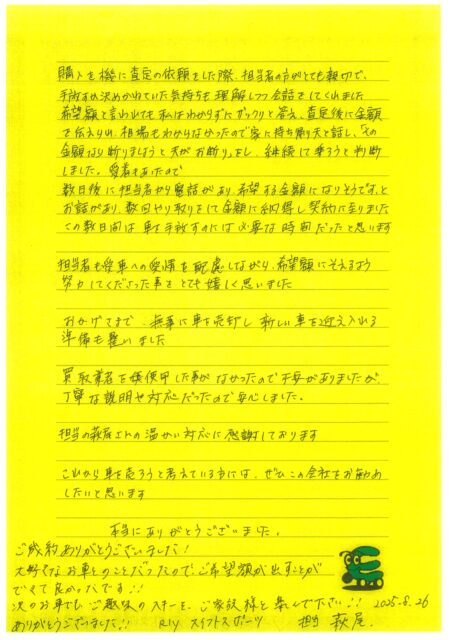 購入を機に査定の依頼をした際、担当者の方がとても親切で、
手放すか決めかねていた気持ちも理解しつつ会話をしてくれました
希望額と言われても私はわからずにザックリと答え、査定後に金額
を伝えられ、相場もわからなかったので家に持ち帰り夫と話し、「その
金額なら断りましょう」と夫がお断りをし、継続して乗ろうと判断
しました。愛着もあったので
数日後に担当者から電話があり、希望する金額になりそうです、と
お話があり、数回やり取りをして金額に納得し契約に至りました
この数日間は車を手放すのには必要な時間だったと思います
担当者も愛車への愛情を配慮しながら、希望額にそえるよう
努力してくださった事をとても嬉しく思いました
おかげさまで、無事に車を売却し新しい車を迎え入れる
準備も整いました
買取業者を使用した事がなかったので不安がありましたが、
丁寧な説明や対応だったので安心しました。
担当の萩尾さんの温かい対応に感謝しております
これから車を売ろうと考えている方には、ぜひこの会社をお勧め
したいと思います
本当にありがとうございました。
ご成約ありがとうございました!
大好きなお車とのことだったので、ご希望額が出すことが
できて良かったです!!
次のお車でもご趣味のスキーを、ご家族様と楽しんで下さい!! 2025.8.26
ありがとうございました!! R1Y スイフトスポーツ 担 萩尾